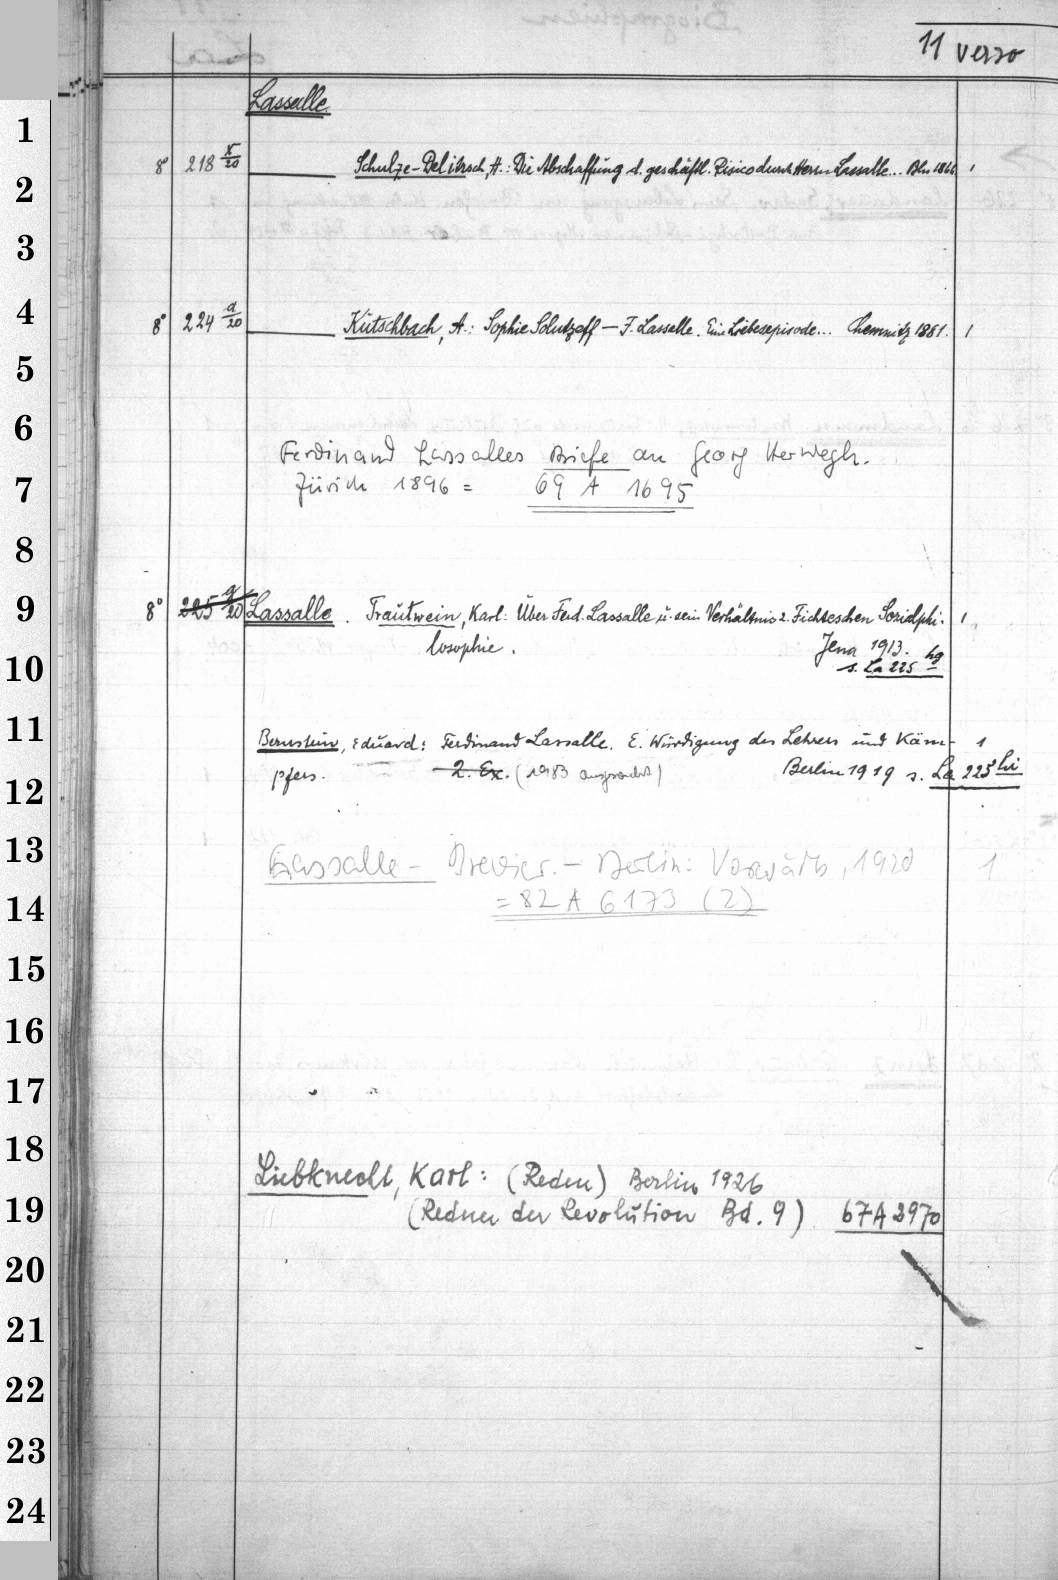 11 verso
Lassalle
1
8° 218 x/20 ——— Schulze-Delitzsch, H.: Die Abschaffung d. geschäftl. Risico durch Herrn Lassalle... Bln 1866 1
2
3
4
8° 224 a/20 ——— Kutschbach, A.: Sophie Solutzeff — F. Lassalle. Eine Liebesepisode... Chemnitz 1881. 1
5
6
Ferdinand Lassalles Briefe an Georg Herwegh.
7
Zürich 1896 = 69 A 1695
8
9
8° 225 g/20 Lassalle. Trautwein, Karl: Über Ferd. Lassalle u. sein Verhältnis z. Fichteschen Sozialphi- 1
losophie. Jena 1913.
10
s. La 225 hg
11
Bernstein, Eduard: Ferdinand Lassalle. E. Würdigung des Lehrers und Käm- 1
pfers. 2. Ex. (1983 ausgesondert) Berlin 1919 s. La 225 hi
12
13
Lassalle-Brevier. – Berlin: Vorwärts, 1920 1
14
= 82 A 6173 (2)
15
16
17
18
Liebknecht, Karl: (Reden) Berlin 1926
19
(Redner der Revolution Bd. 9) 67 A 3970
20
21
22
23
24